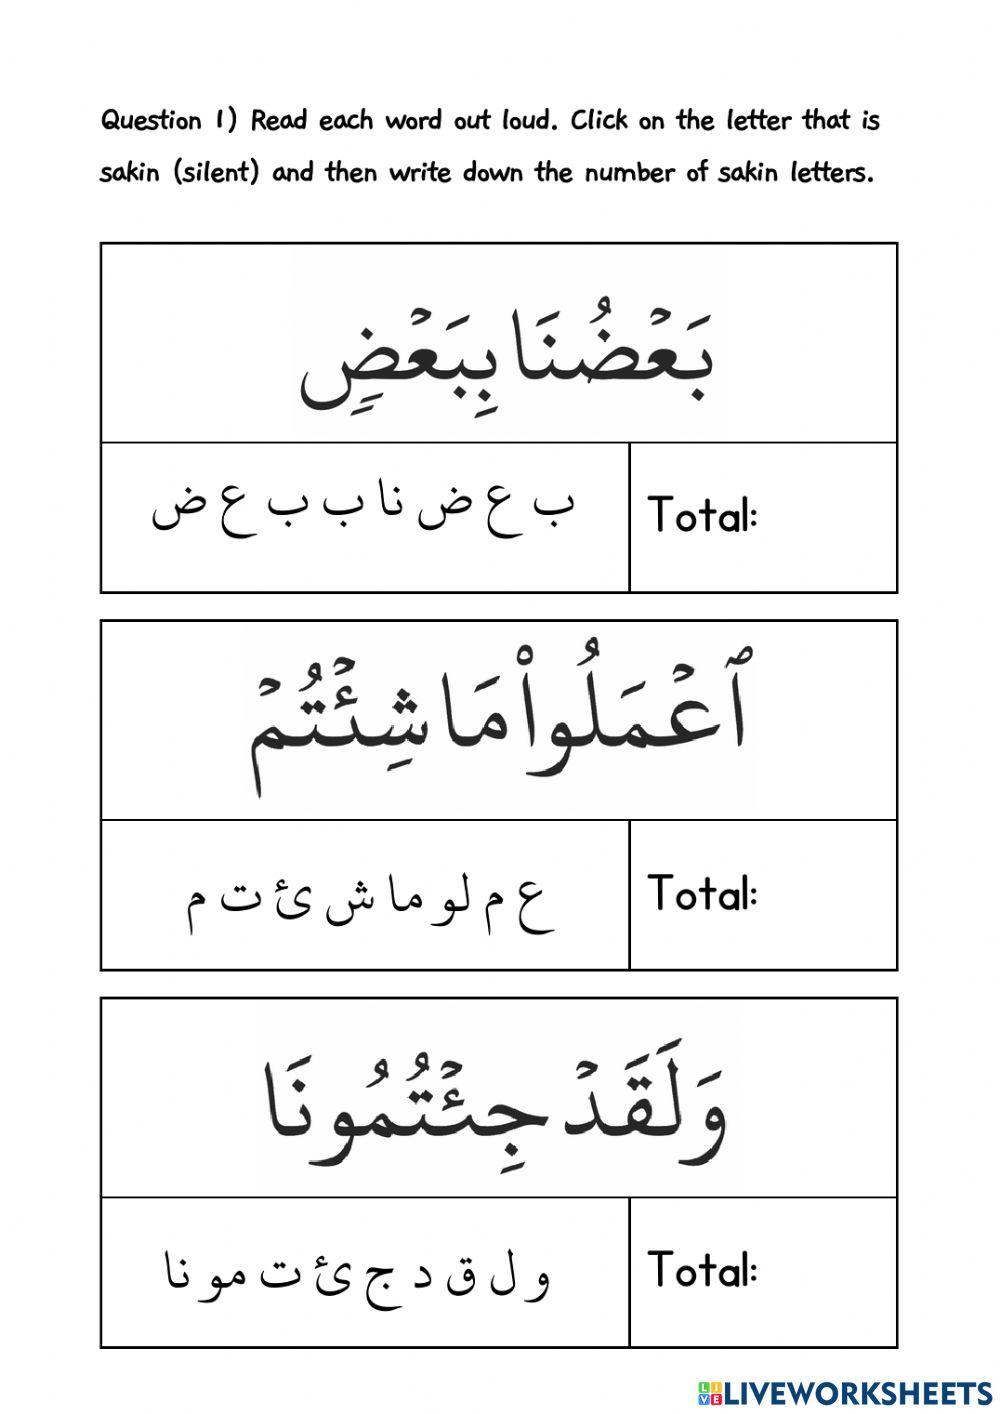 Question 1) Read each word out loud. Click on the letter that is
sakin (silent) and then write down the number of sakin letters.
بَعۡضُنَا بِبَعۡضٖ
ب ع ض نا ب ب ع ض
Total:
ٱعۡمَلُواْ مَا شِئۡتُمۡ
ع م لو ما ش ئ ت م
Total:
وَلَقَدۡ جِئۡتُمُونَا
و ل ق د ج ئ ت مو نا
Total:
LIVEWORKSHEETS